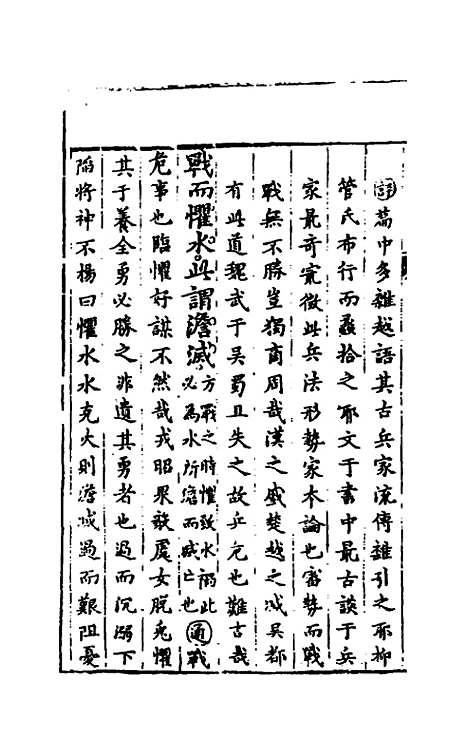 評篇中多雜越語其古兵家流傳雜引之耶抑
管氏布行而蠡拾之耶文于書中最古談于兵
家最奇寔微此兵法形勢家本論也審勢而戰
戰無不勝豈獨商周哉漢之威楚越之滅吳都
有此道魏武于吳蜀且失之故兵危也難古哉
戰而懼水此謂澹滅方戰之時懼致水禍此必為水所澹而滅亡也通戰
危事也臨懼好謀不然哉戎昭果毅處女脫兔懼
其于養全勇必勝之非遺其勇者也過而沉溺下
陷將神不揚曰懼水水克火則澹滅過而艱阻憂